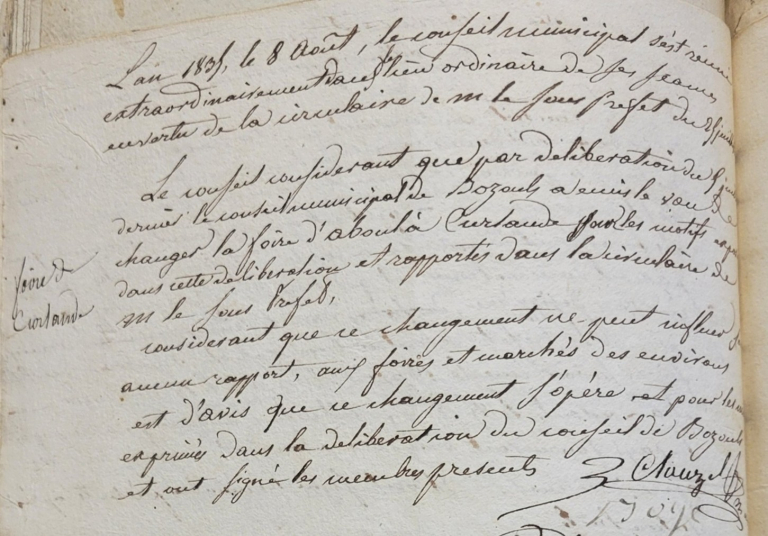 L'an 1835, le 8 Août, le conseil municipal s'est réuni
extraordinairement dans le lieu ordinaire de ses séances
en vertu de la circulaire de m le sous Préfet du
Le conseil considérant que par délibération du
dernier le conseil municipal de Bozouls a émis le vœu de
changer la foire d'aboul à Curlande pour les motifs
dans cette délibération et rapportés dans la circulaire de
m le sous Préfet,
foire de
Curlande
considérant que ce changement ne peut influer
aucun rapport, aux foires et marchés des environs
est d'avis que ce changement s'opère et pour les
exprimés dans la délibération du conseil de Bozouls
et ont signé les membres présents
Clauzel